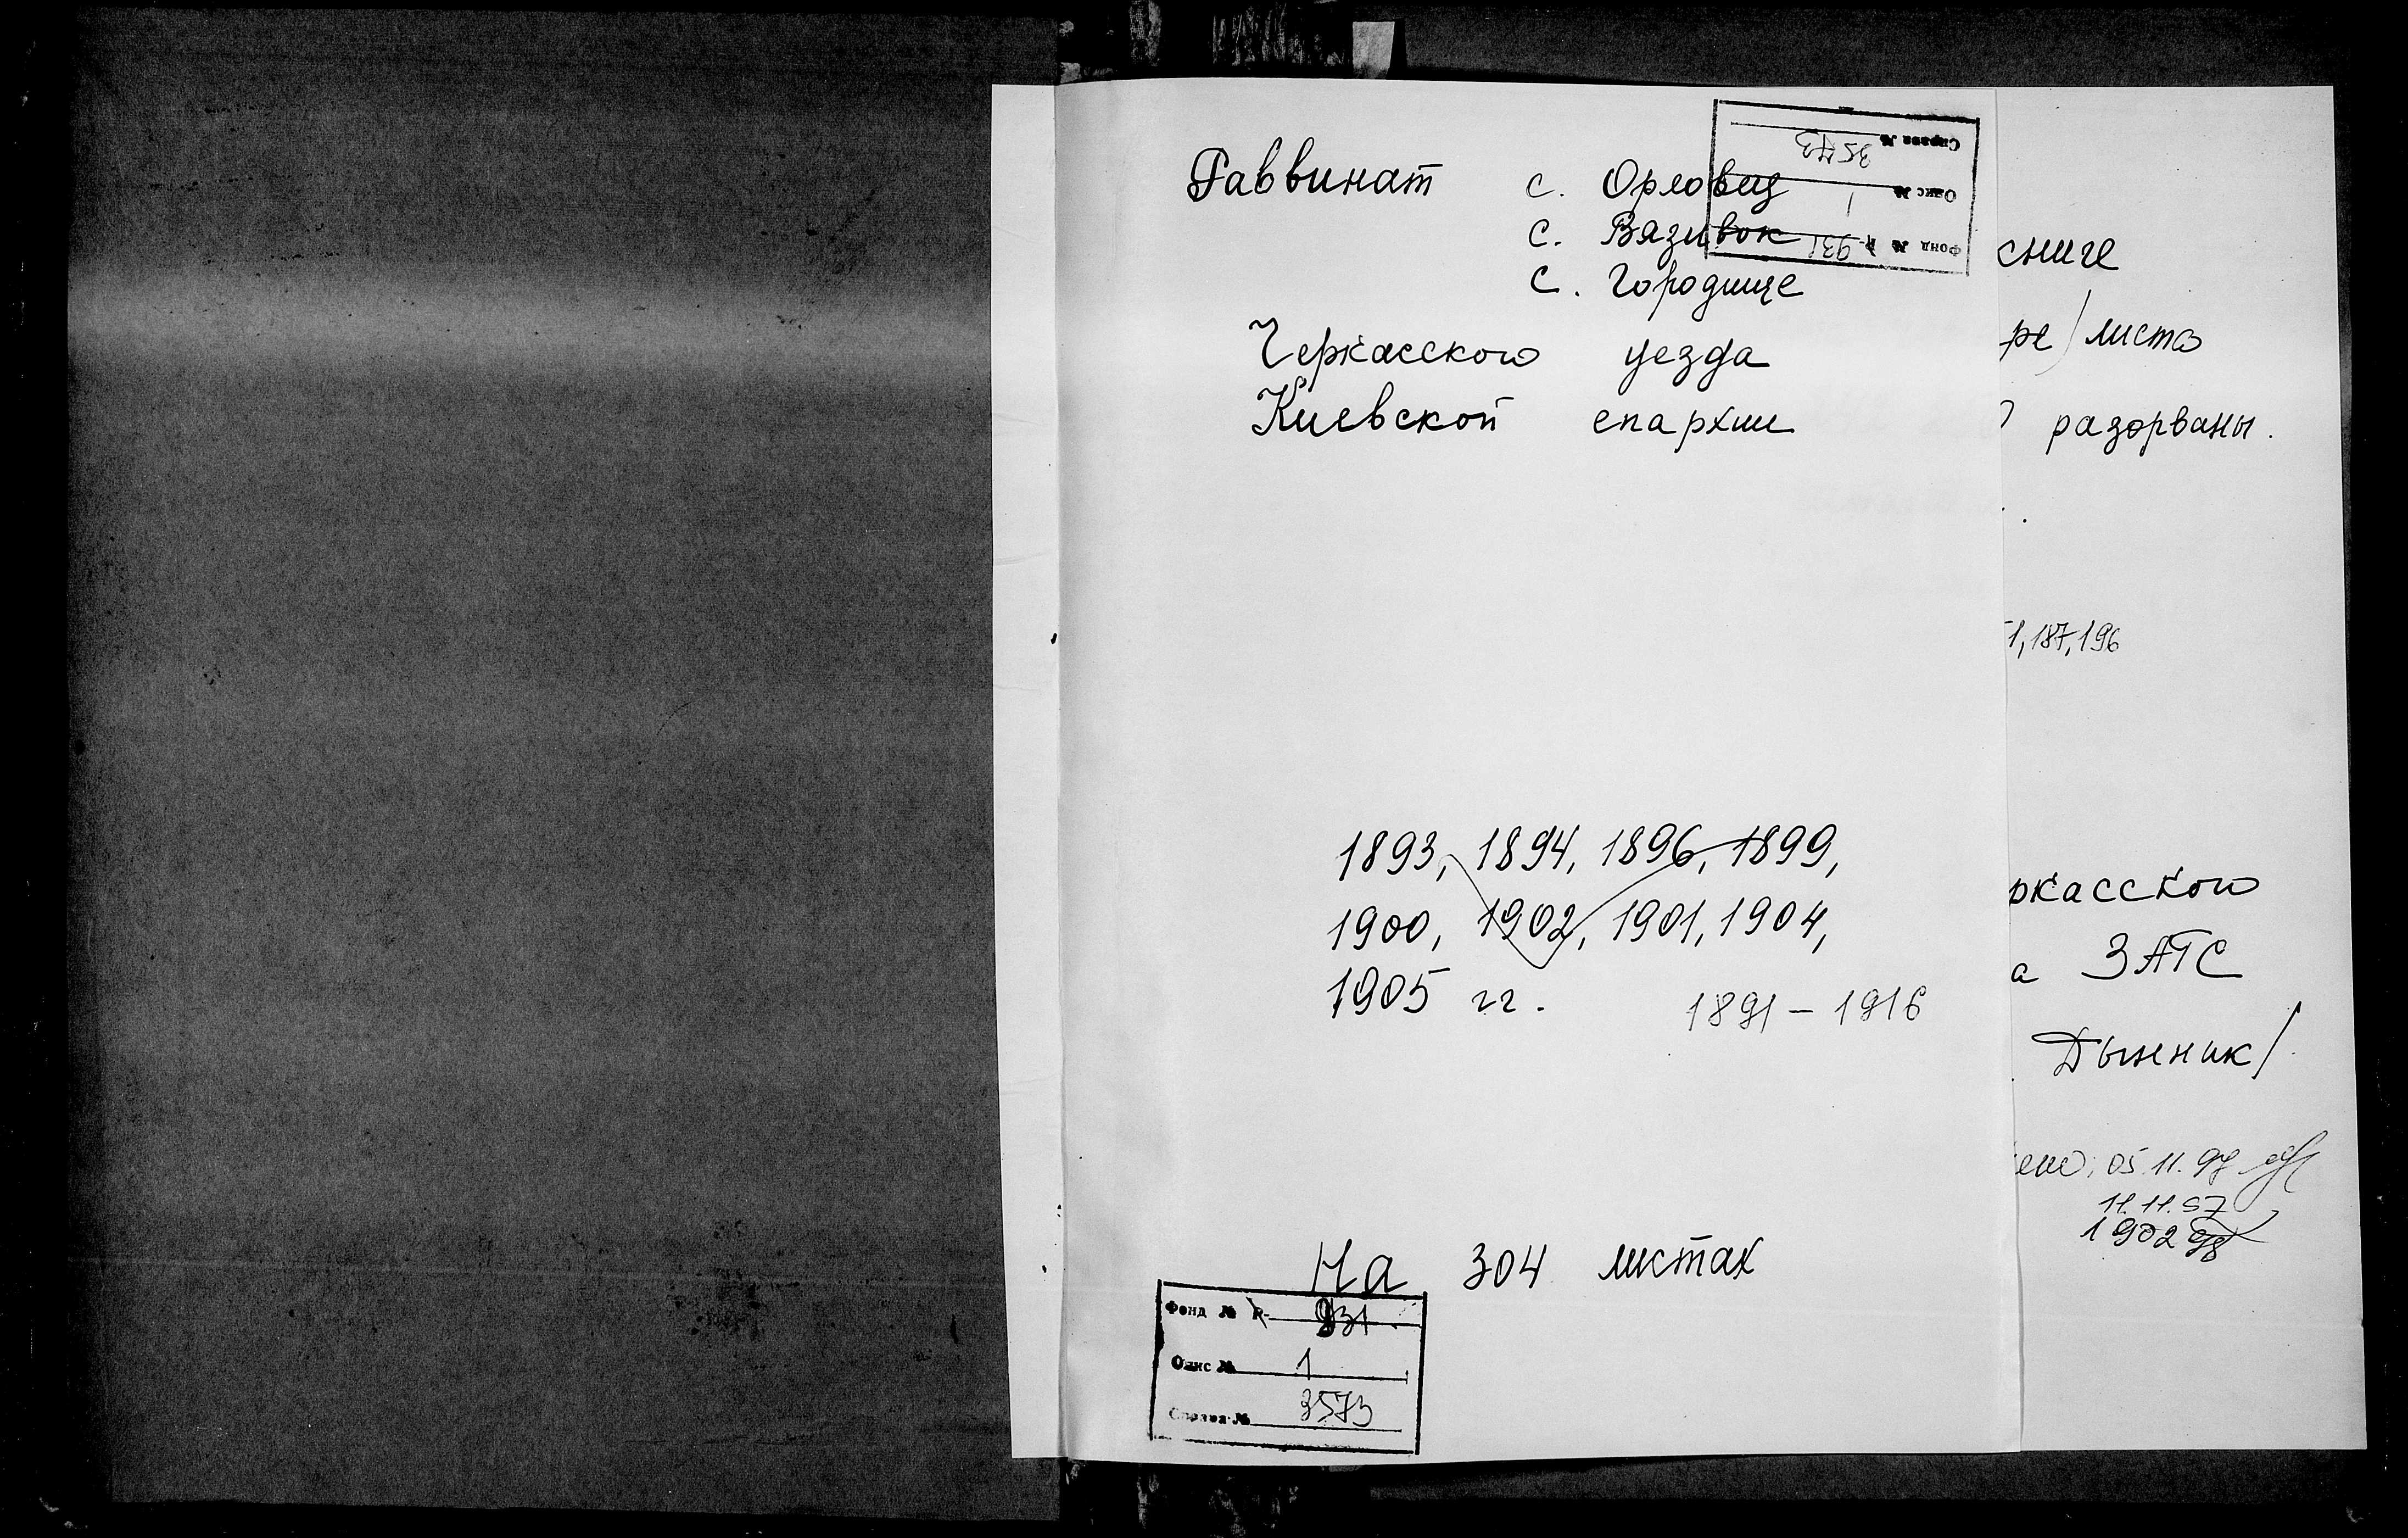 Раввинат с. Орловец
с. Вязивок
с. Городище
Черкасского уезда
Киевской епархии
Справа № 3573
Опис № 1
Фонд № Р- 931
1893, 1894, 1896, 1899,
1900, 1902, 1901, 1904,
1905 гг. 1891 – 1916
На 304 листах
Фонд № Р- 931
Опис № 1
Справа № 3573
книге
ре/ листа
разорваны.
1, 187, 196
ркасского
а ЗАГС
Дыжник/
ено: 05.11.97
11.11.97
1902